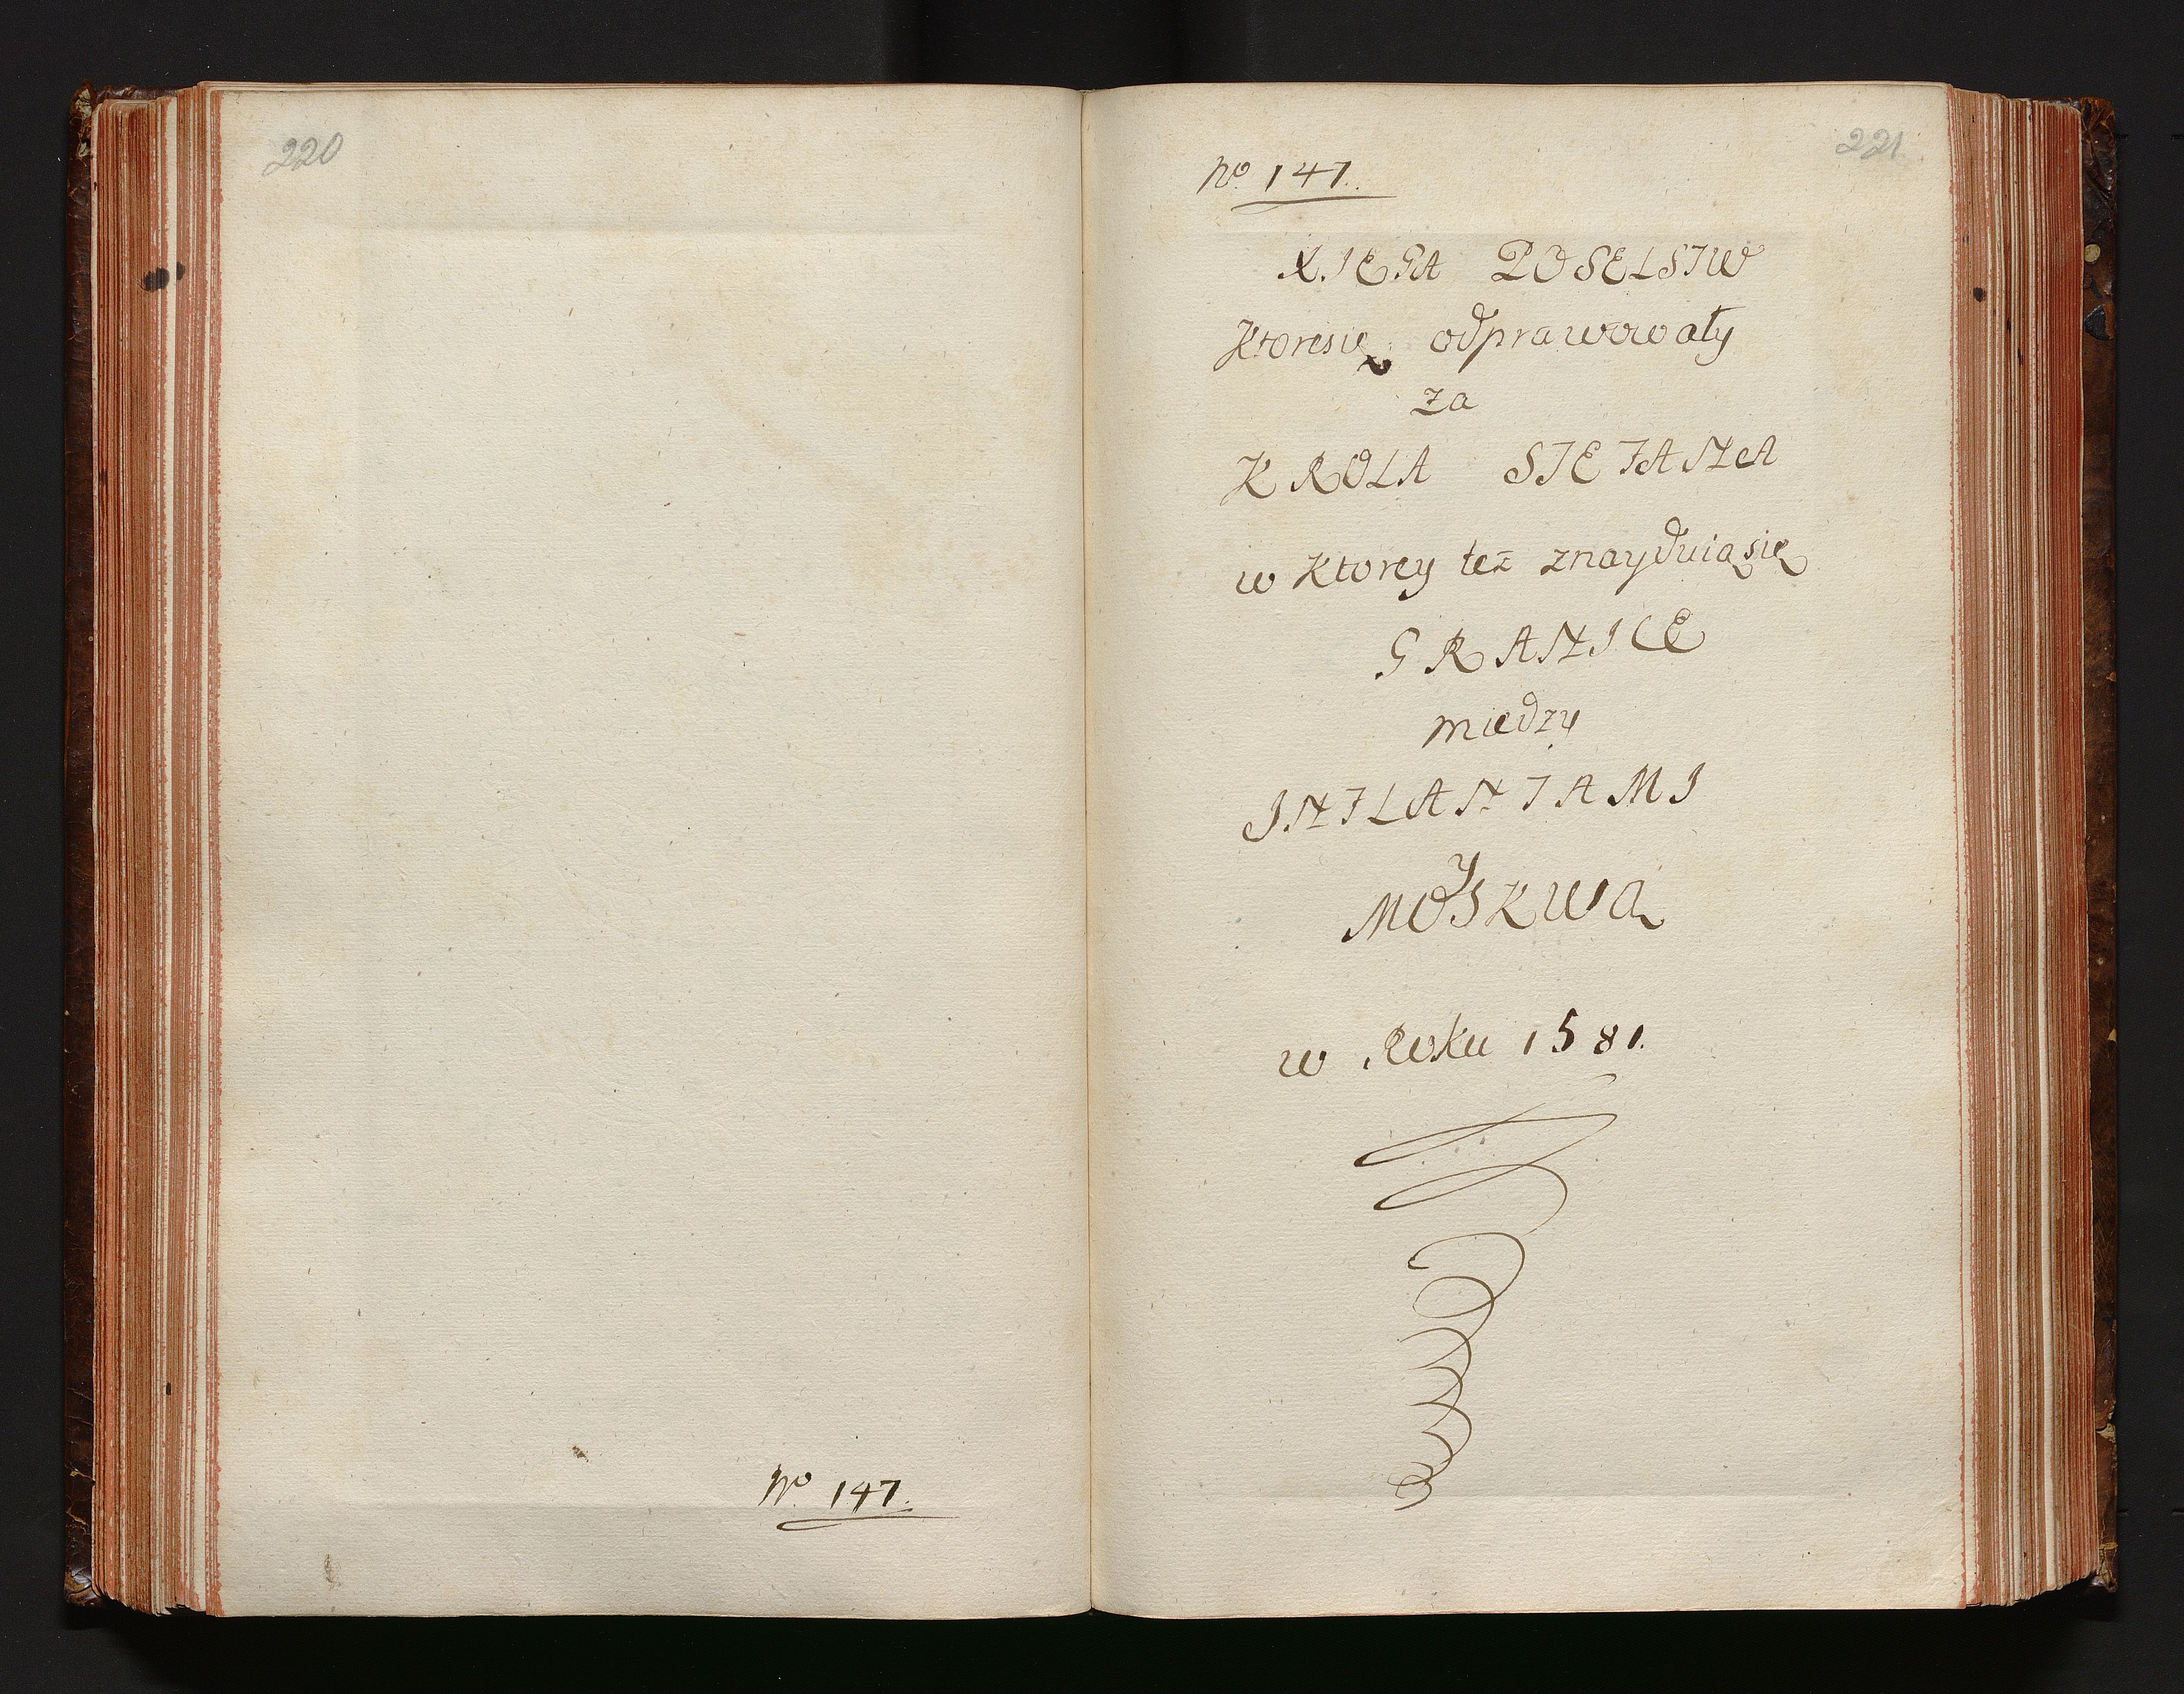 220
No 147.
221
No 147.
XIĘGA POSELSTW
Ktoresię odprawowały
za
KROLA STEFANA
w Ktorey też znayduią się
GRANICE
miedzy
INFLANTAMI
y
MOSKWĄ
w Roku 1581.